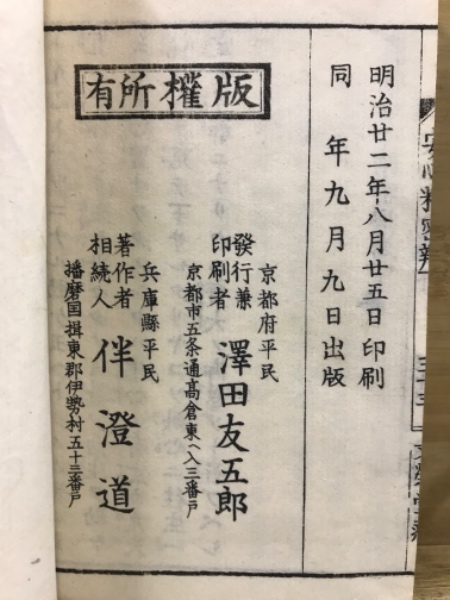 明治廿二年八月廿五日印刷
同年九月九日出版
版權所有
京都府平民
發行兼
印刷者
澤田友五郎
京都市五条通高倉東ヘ入三番戸
兵庫縣平民
著作者
相続人
伴澄道
播磨国揖東郡伊勢村五十三番戸